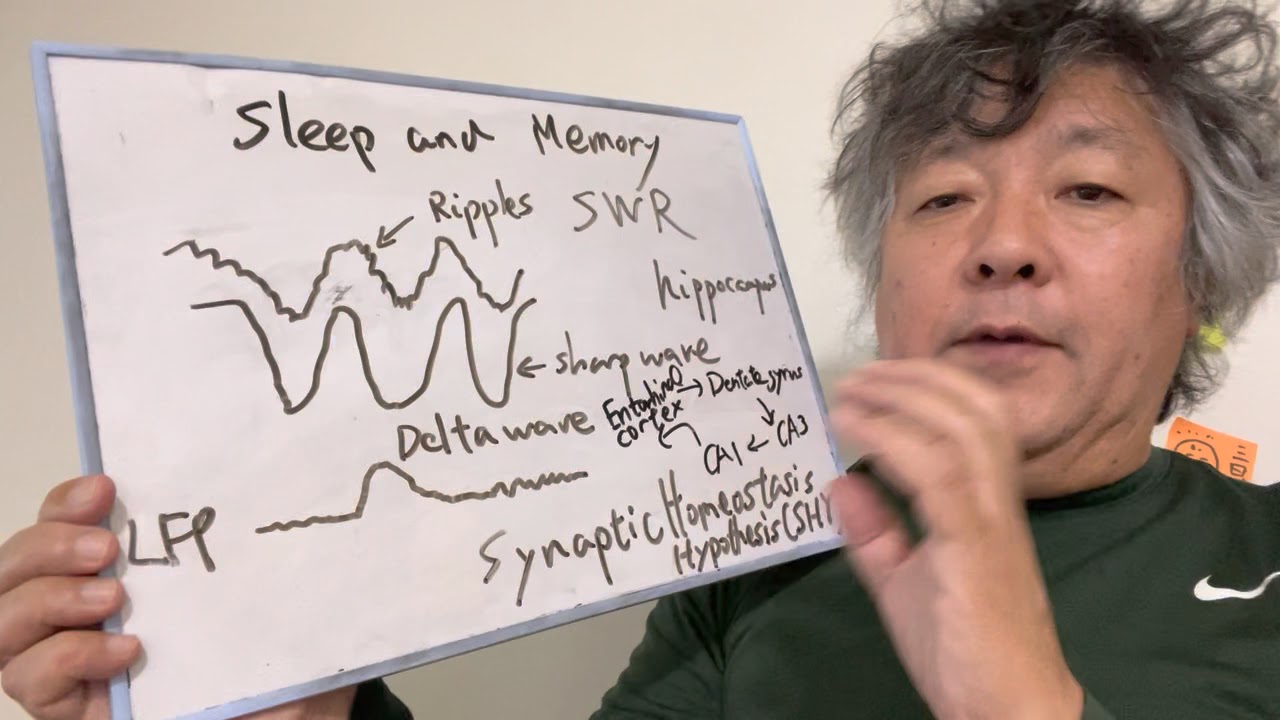 Sleep and Memory
Ripples
SWR
hippocampus
sharp wave
Delta wave
Entorhinal
cortex
Dentate gyrus
CA3
CA1
LFP
Synaptic Homeostasis
Hypothesis (SHY
三
日